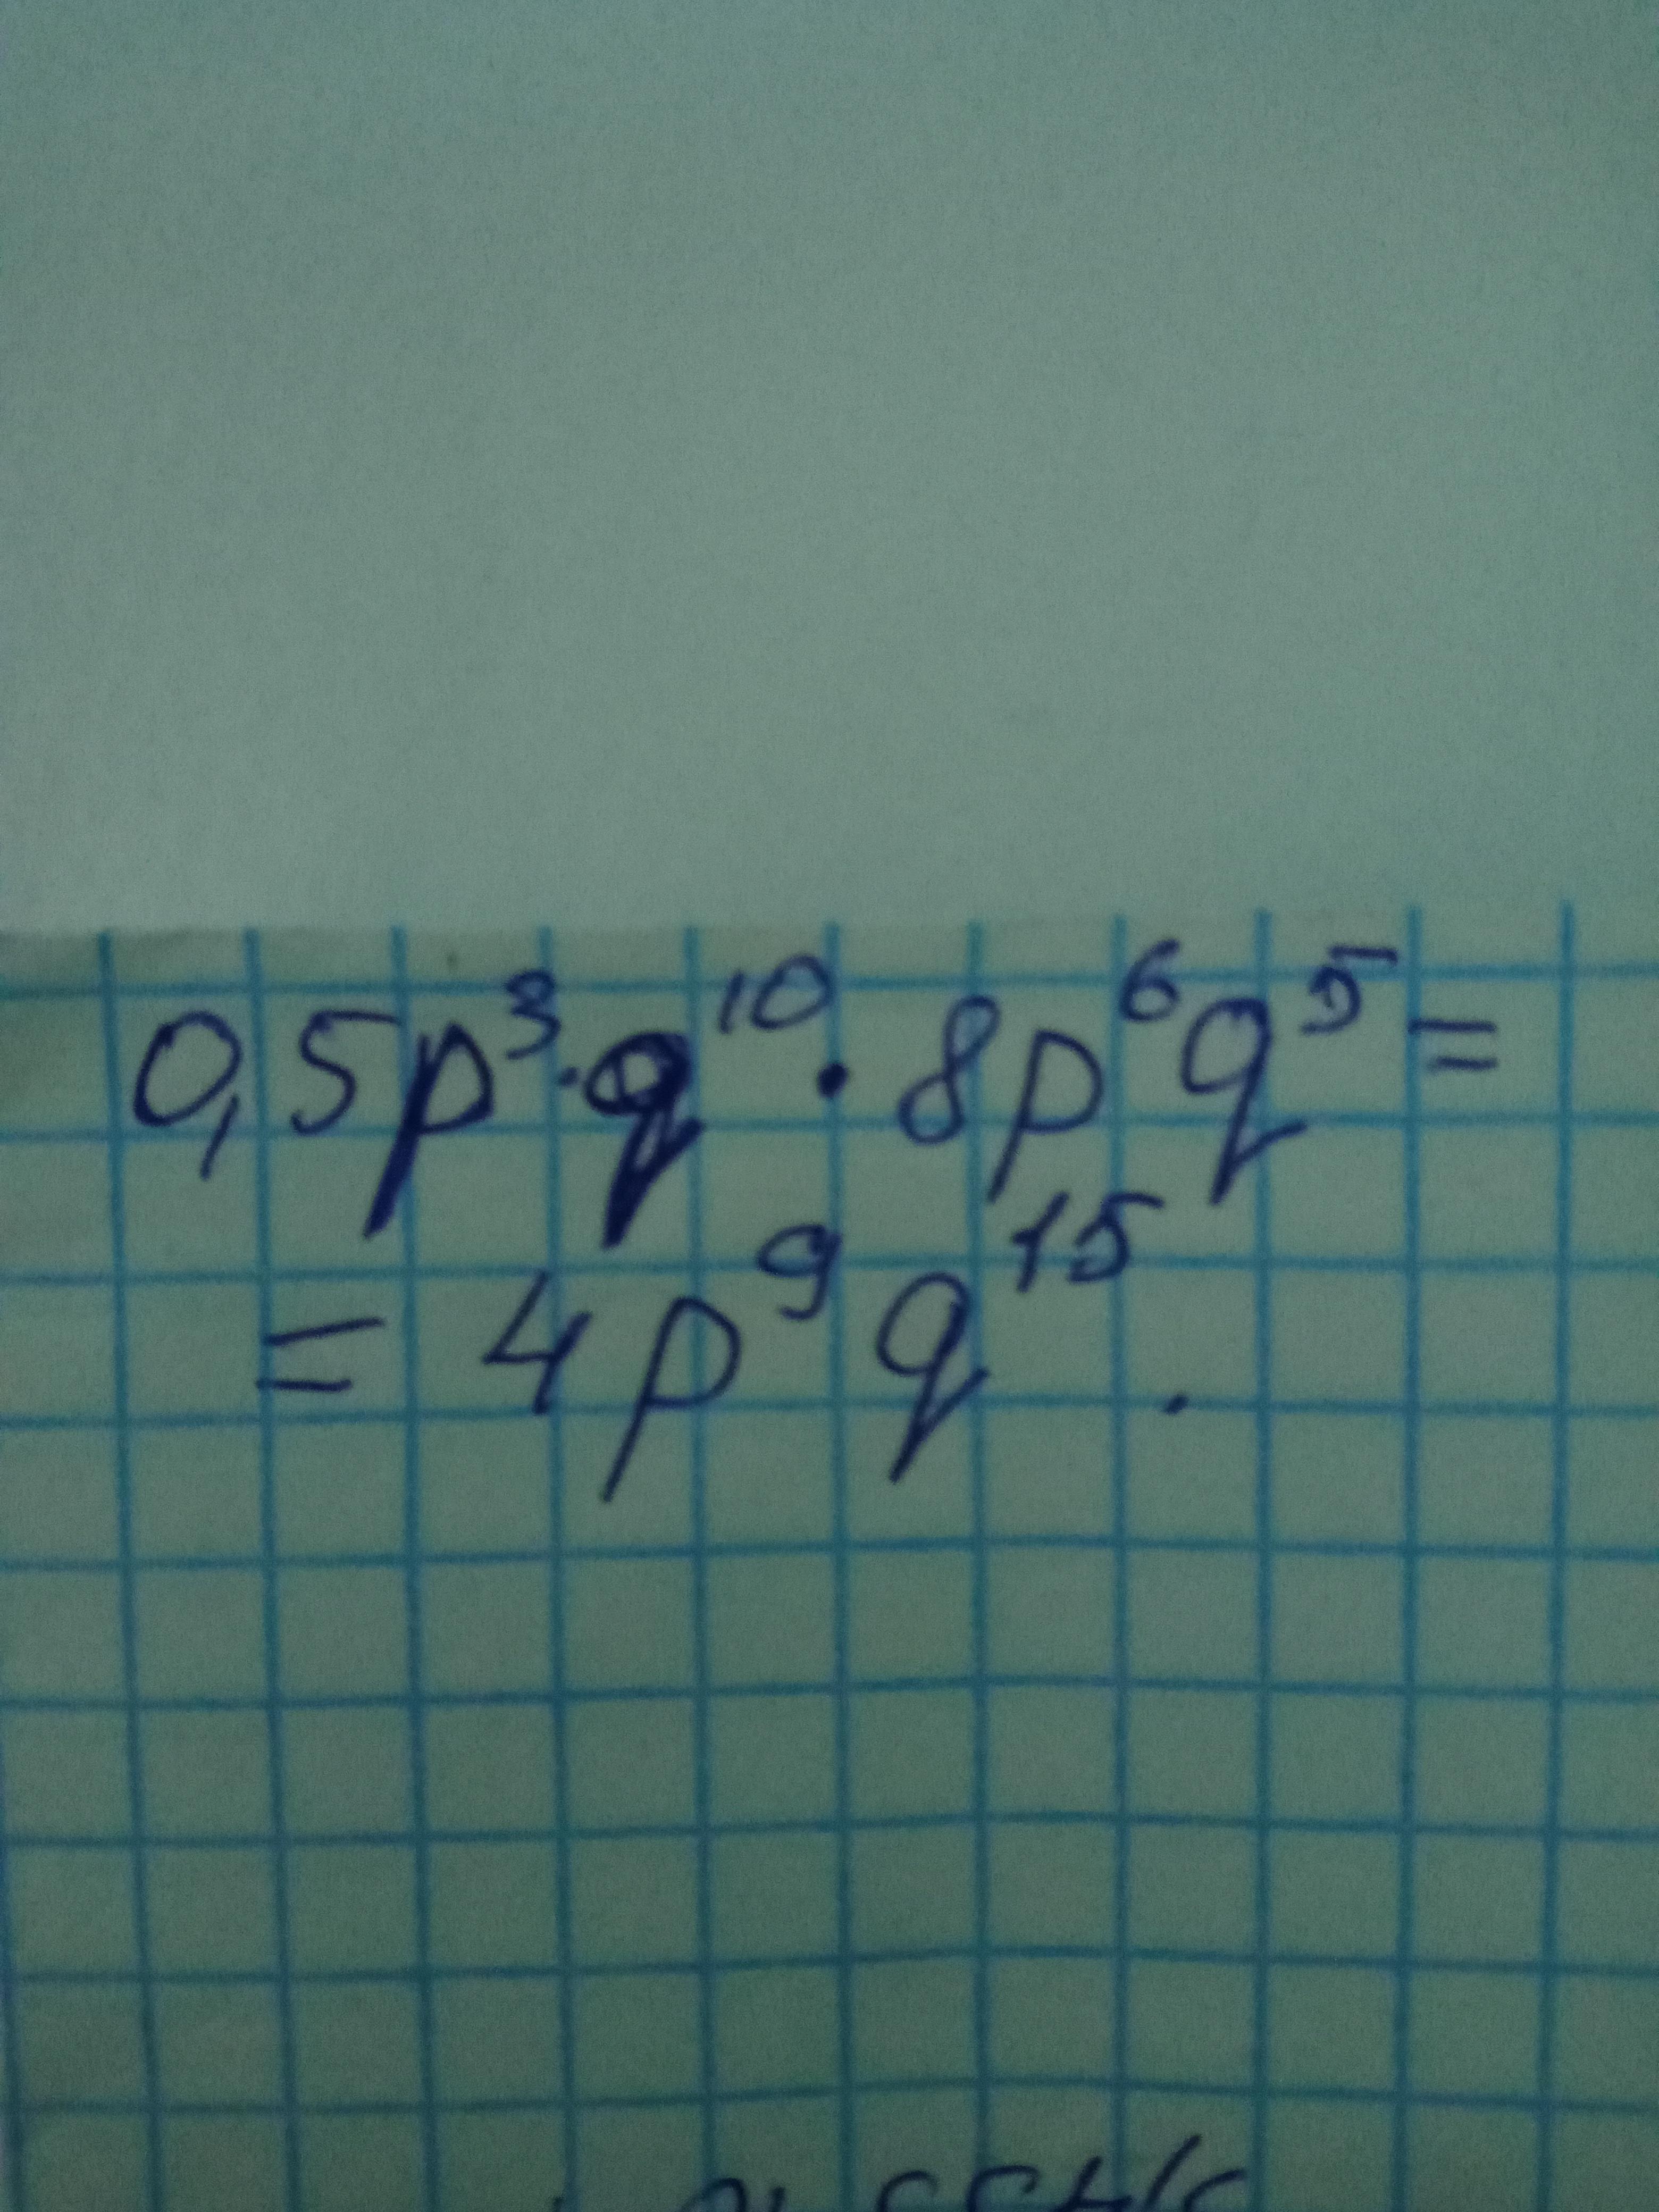 0,5p³·q¹⁰·8p⁶q⁵=
=4p⁹q¹⁵.